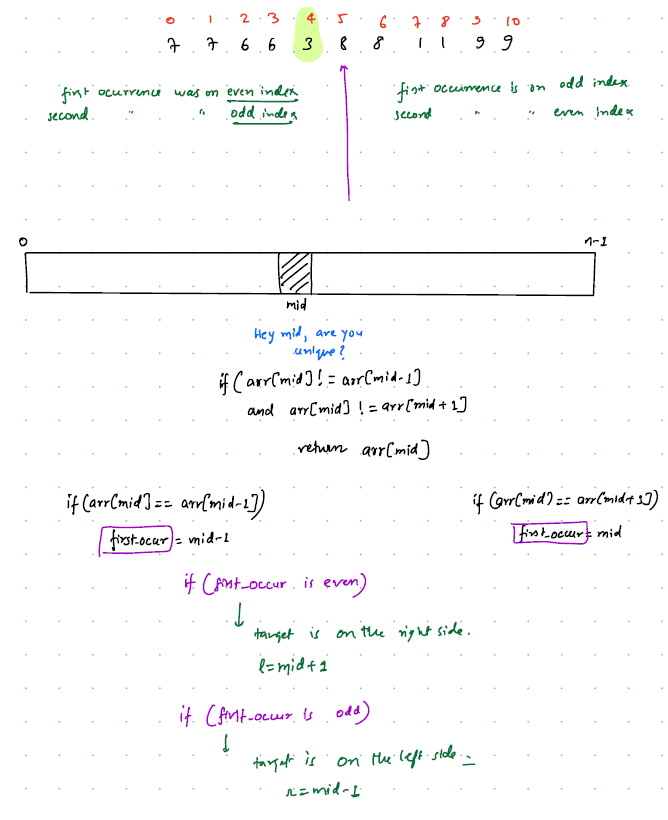 0 1 2 3 4 5 6 7 8 9 10
7 7 6 6 3 8 8 1 1 9 9
first ocurrence was on even index
second " " odd index
first occurrence is on odd index
second " " even index
0 n-1
mid
Hey mid, are you
unique?
if (arr[mid] != arr[mid-1]
and arr[mid] != arr[mid+1]
return arr[mid]
if (arr[mid] == arr[mid-1])
first-occur = mid-1
if (arr[mid] == arr[mid+1])
first_occur = mid
if (first_occur is even)
↓
target is on the right side.
l=mid+1
if (first-occur is odd)
↓
target is on the left side
r=mid-1